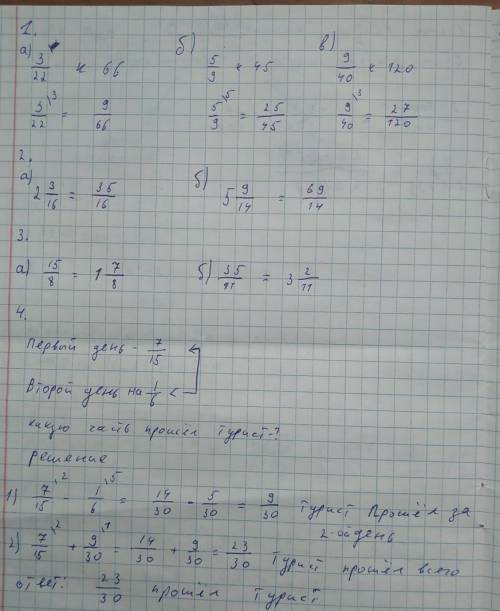 1.
а) 3/22 к 66 б) 5/9 к 45 в) 9/40 к 120
3/22 \3 = 9/66 5/9 \5 = 25/45 9/40 \3 = 27/120
2.
а) 2 3/16 = 35/16 б) 5 9/14 = 69/14
3.
а) 15/8 = 1 7/8 б) 35/11 = 3 2/11
4.
Первый день - 7/15
Второй день на 1/6 <
какую часть прошёл турист-?
решение
1) 7/15 \2 - 1/6 \5 = 14/30 - 5/30 = 9/30 турист прошёл за
2-ой день
2) 7/15 \2 + 9/30 \1 = 14/30 + 9/30 = 23/30 турист прошёл всего
ответ: 23/30 прошёл турист